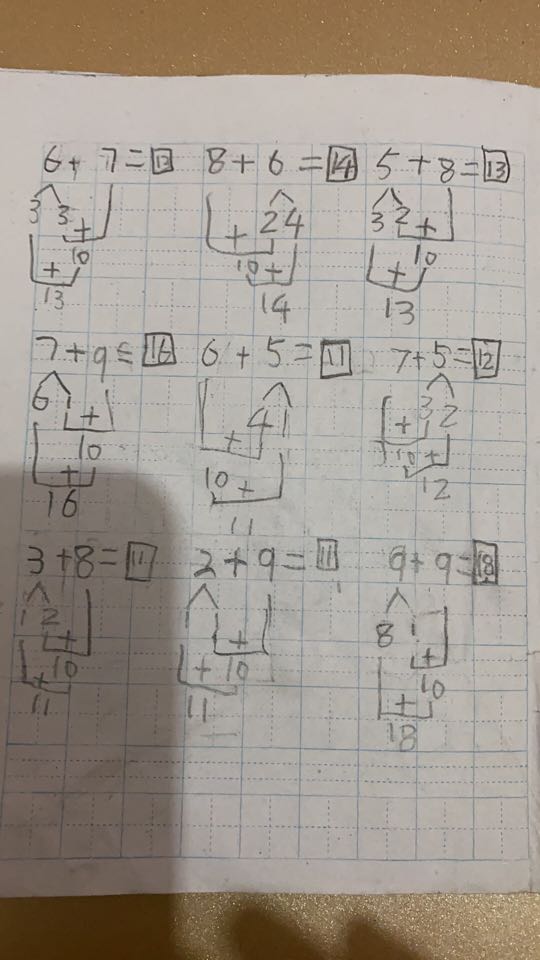 6+7=13 8+6=14 5+8=13
3 3 + 2 4 3 2 +
+ 10 + 10 + + 10
13 14 13
7+9=16 6+5=11 7+5=12
6 1 + 4 1 3 2
+ 10 + 10 + + 10 +
16 11 12
3+8=11 2+9=11 9+9=18
1 2 1 1 8 1
+ 10 + + 10 + + 10 +
11 11 18